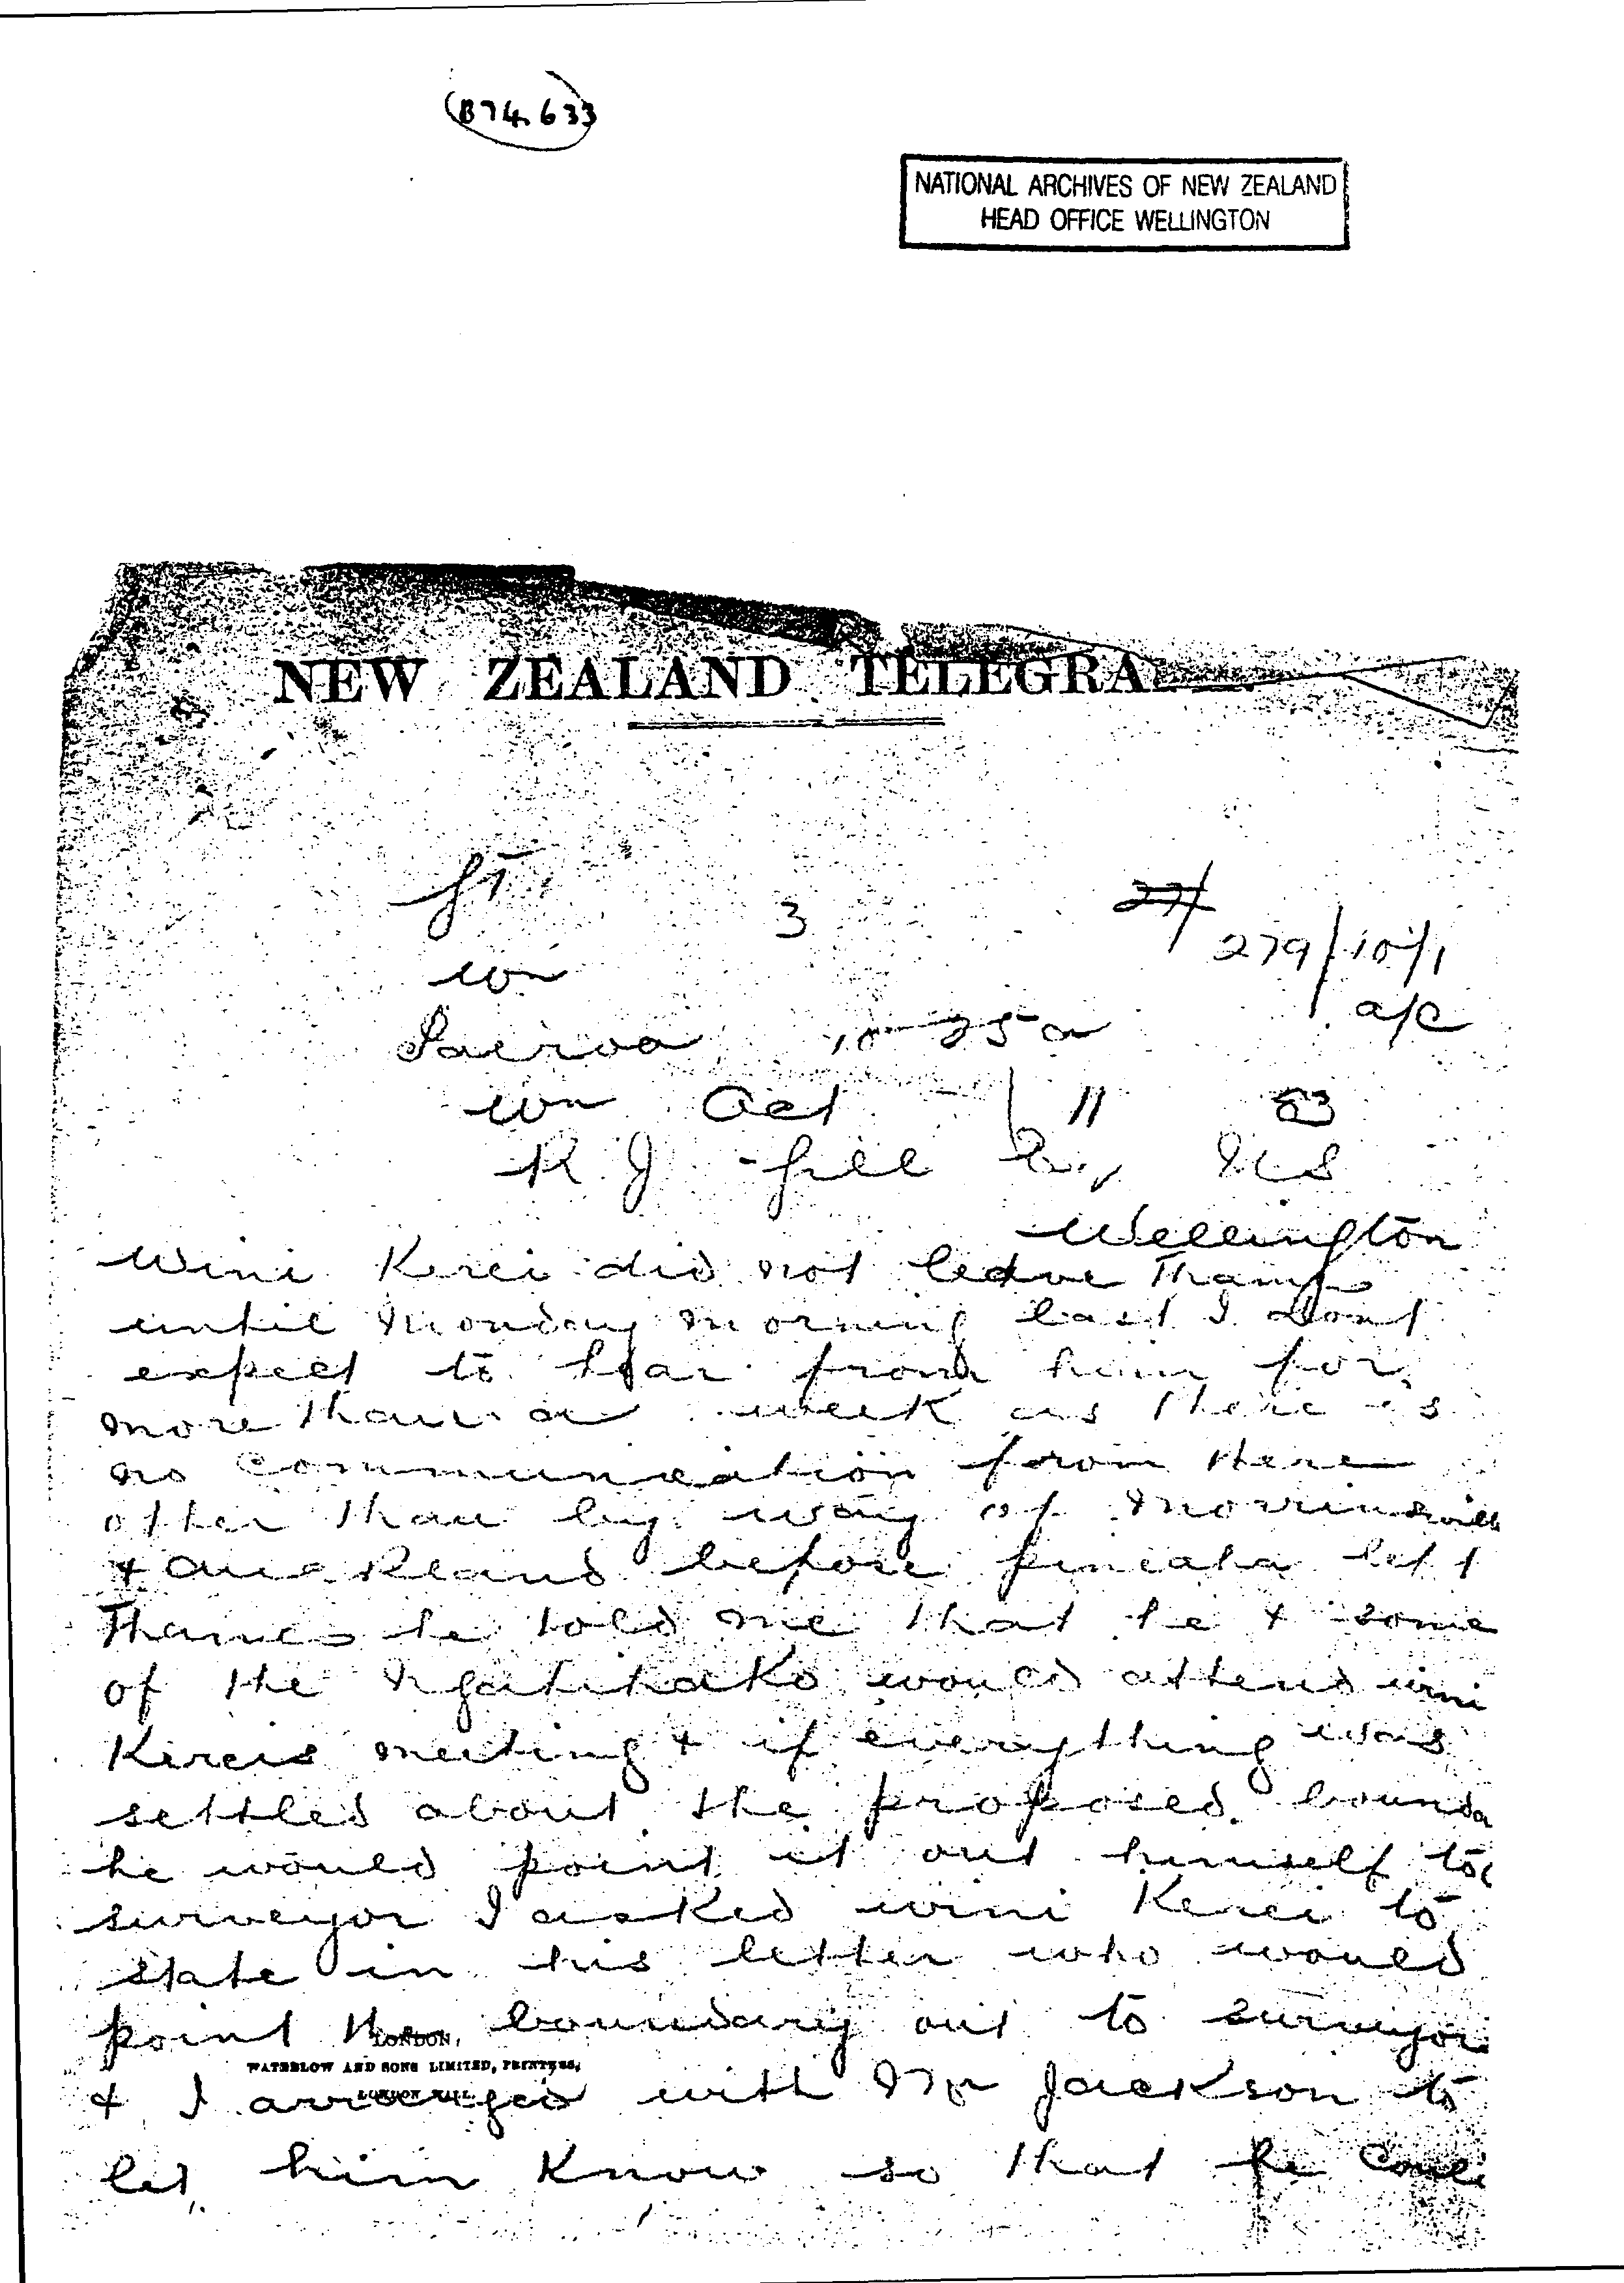 B74.633
NATIONAL ARCHIVES OF NEW ZEALAND
HEAD OFFICE WELLINGTON
NEW ZEALAND TELEGRA
3 27/
279/10/1
wn
a/c
Paeroa 10-25a
wn Oct 11 83
R J Gill
Wellington
Wini Kerei did not leave Thames
until monday morning last I dont
expect to hear from him for
more than a week as there is
no communication from there
other than by way of Morrinsville
& Auckland before pineaha left
Thames he told me that he & some
of the Ngatihako would attend wini
Kereis meeting & if everything was
settled about the proposed bounda
he would point it out himself to
surveyor I asked wini Kerei to
state in his letter who would
point the boundary out to surveyor
LONDON,
WATERLOW AND SONS LIMITED, PRINTERS,
LONDON WALL
& I arranged with Mr Jackson to
let him know so that he coul